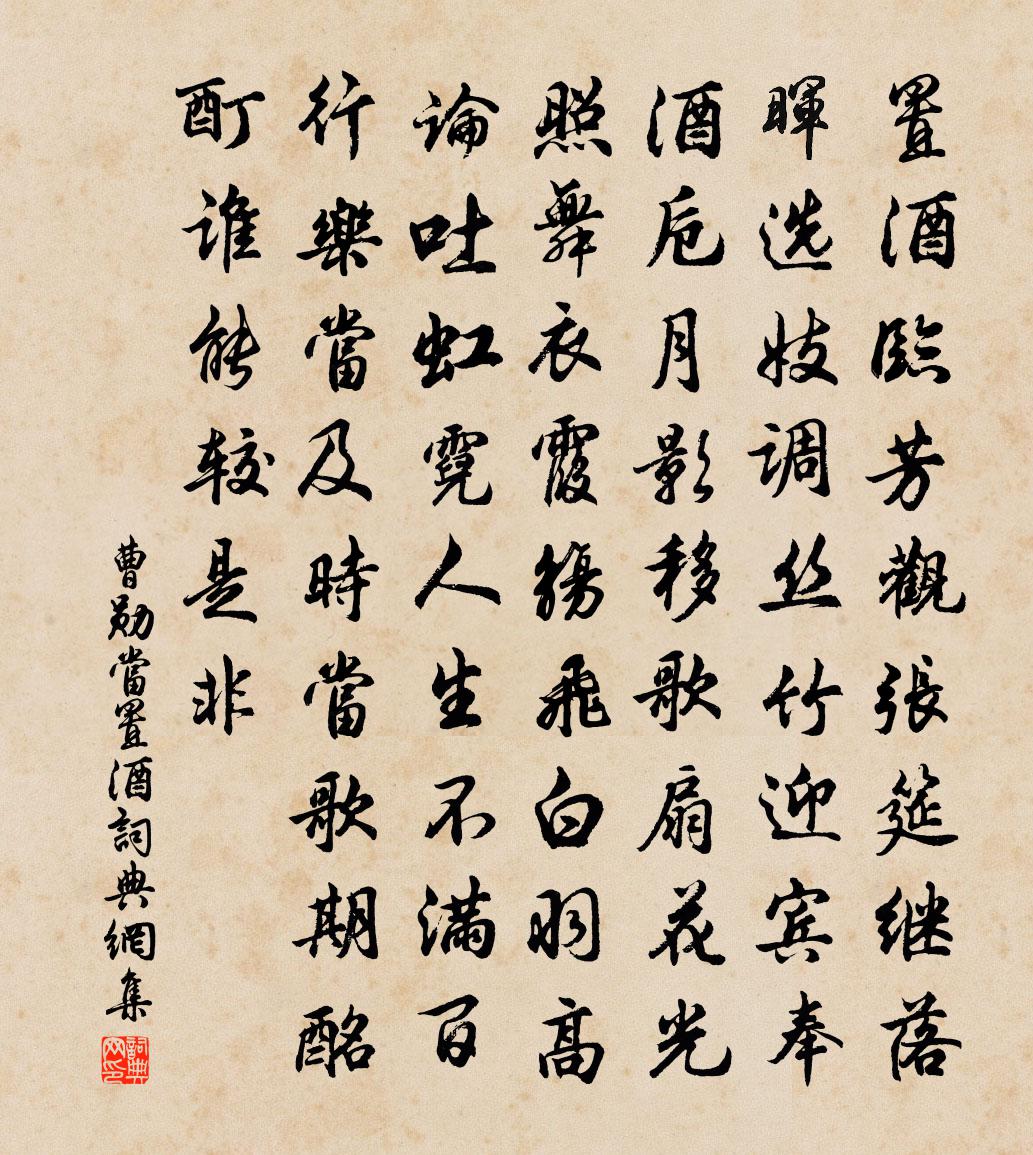 置酒臨芳觀張筵继落
暉选妓调丝竹迎宾奉
酒卮月影移歌扇花光
照舞衣霞觴飛白羽高
論吐虹霓人生不满百
行樂當及時當歌期酩
酊谁能较是非
曹勛當置酒詞典網集
詞典网印